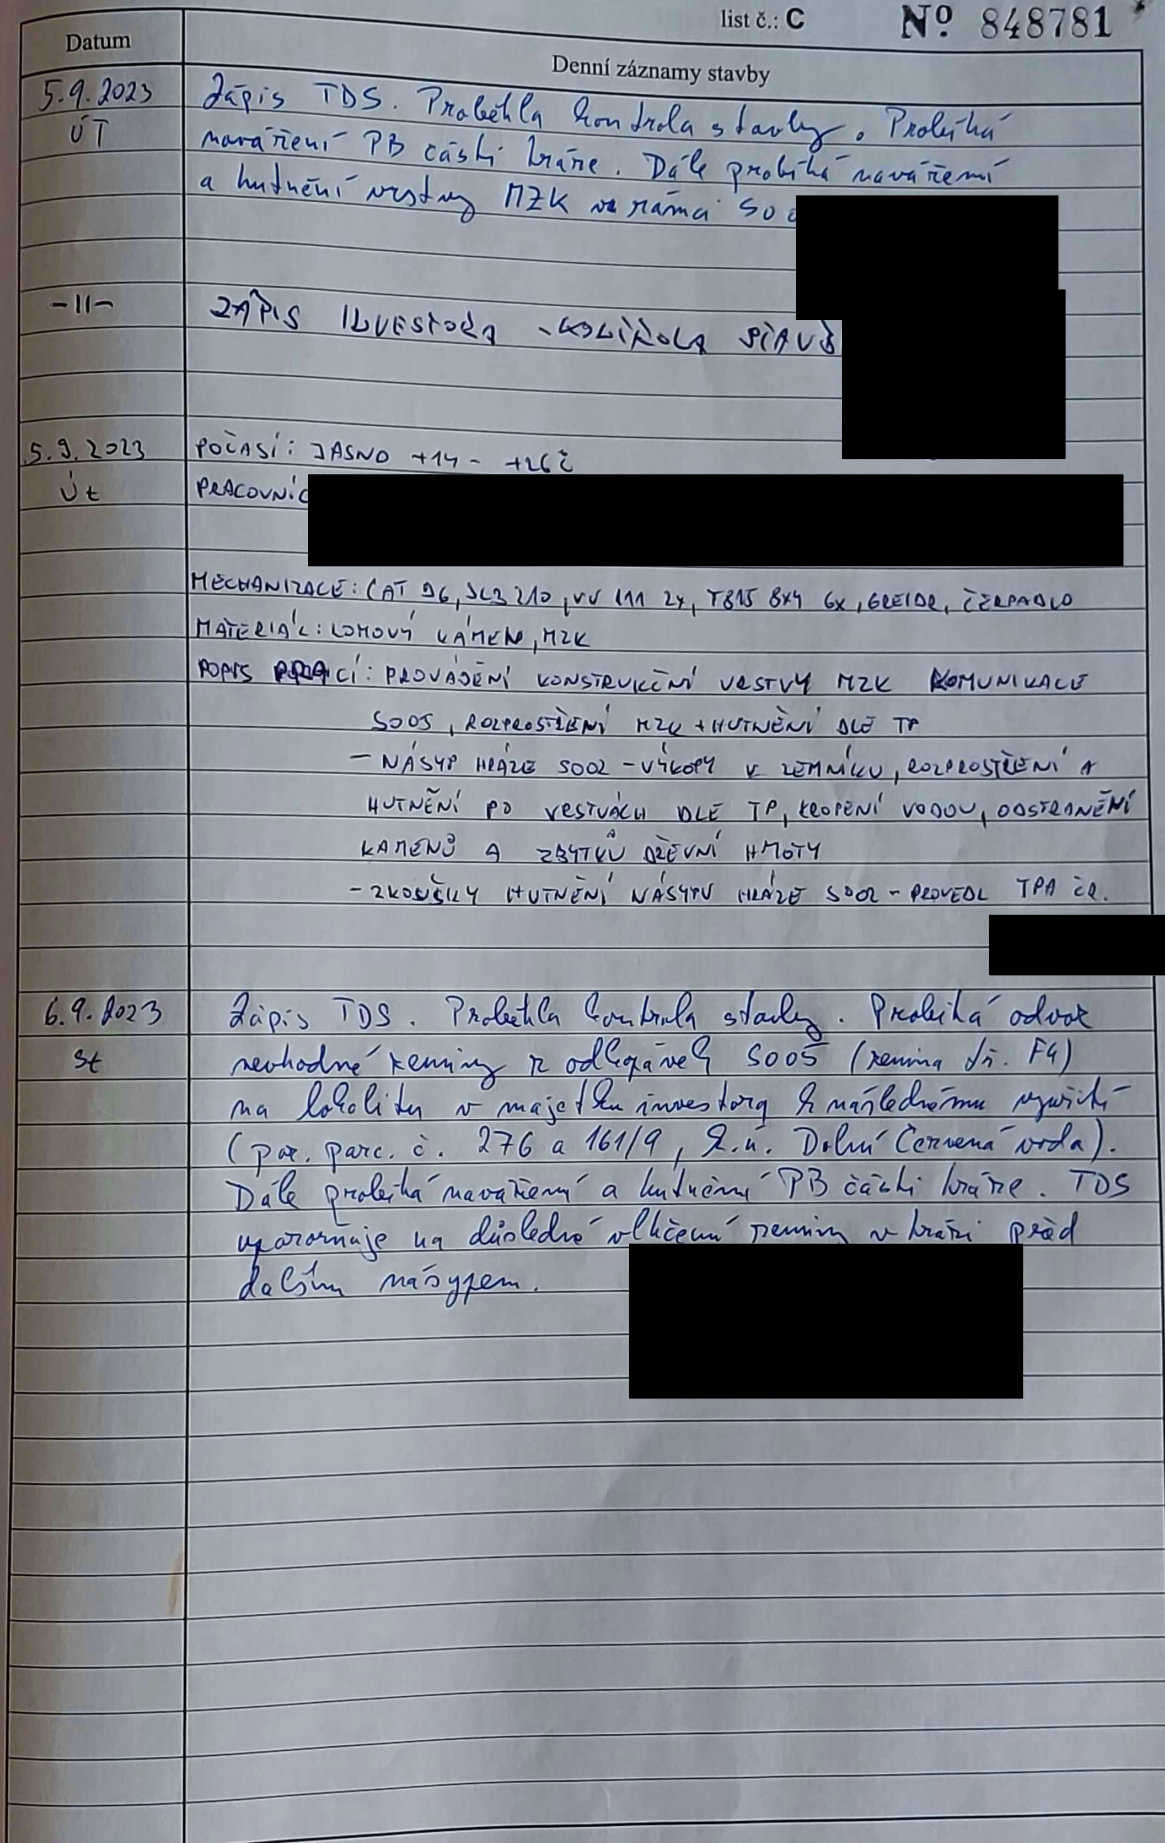 list č.: C Nº 848781
Datum
Denní záznamy stavby
5.9.2023 Zápis TDS. Proběhla kontrola stavby. Probíhá
ÚT navážení PB části hráze. Dále probíhá navážení
a hutnění vrstvy MZK v rámci SO
-11- ZÁPIS INVESTORA - KONTROLA STAVB
5.9.2023 POČASÍ: JASNO +14 - +26°C
Út PRACOVNÍC
MECHANIZACE: CAT D6, JCB 210, VV 111 2x, T815 8x4 6x, GREIDR, ČERPADLO
MATERIÁL: LOMOVÝ KÁMEN, MZK
POPIS PRACÍ: PROVÁDĚNÍ KONSTRUKČNÍ VRSTVY MZK KOMUNIKACE
SO05, ROZPROSTŘENÍ MZK + HUTNĚNÍ DLE TP
- NÁSYP HRÁZE SO02 - VÝKOPY V ZEMNÍKU, ROZPROSTŘENÍ A
HUTNĚNÍ PO VRSTVÁCH DLE TP, KROPENÍ VODOU, ODSTRANĚNÍ
KAMENŮ A ZBYTKŮ DŘEVNÍ HMOTY
- ZKOUŠKY HUTNĚNÍ NÁSYPU HRÁZE SO02 - PROVEDL TPA ČR.
6.9.2023 Zápis TDS. Proběhla kontrola stavby. Probíhá odvoz
St nevhodné zeminy z odkopávek SO05 (zemina tř. F4)
na lokalitu v majetku investora k následnému využití
(poz. parc. č. 276 a 161/9, k.ú. Dolní Červená voda).
Dále probíhá navážení a hutnění PB části hráze. TDS
upozorňuje na důsledné vlhčení zeminy v hrázi před
dalším násypem.